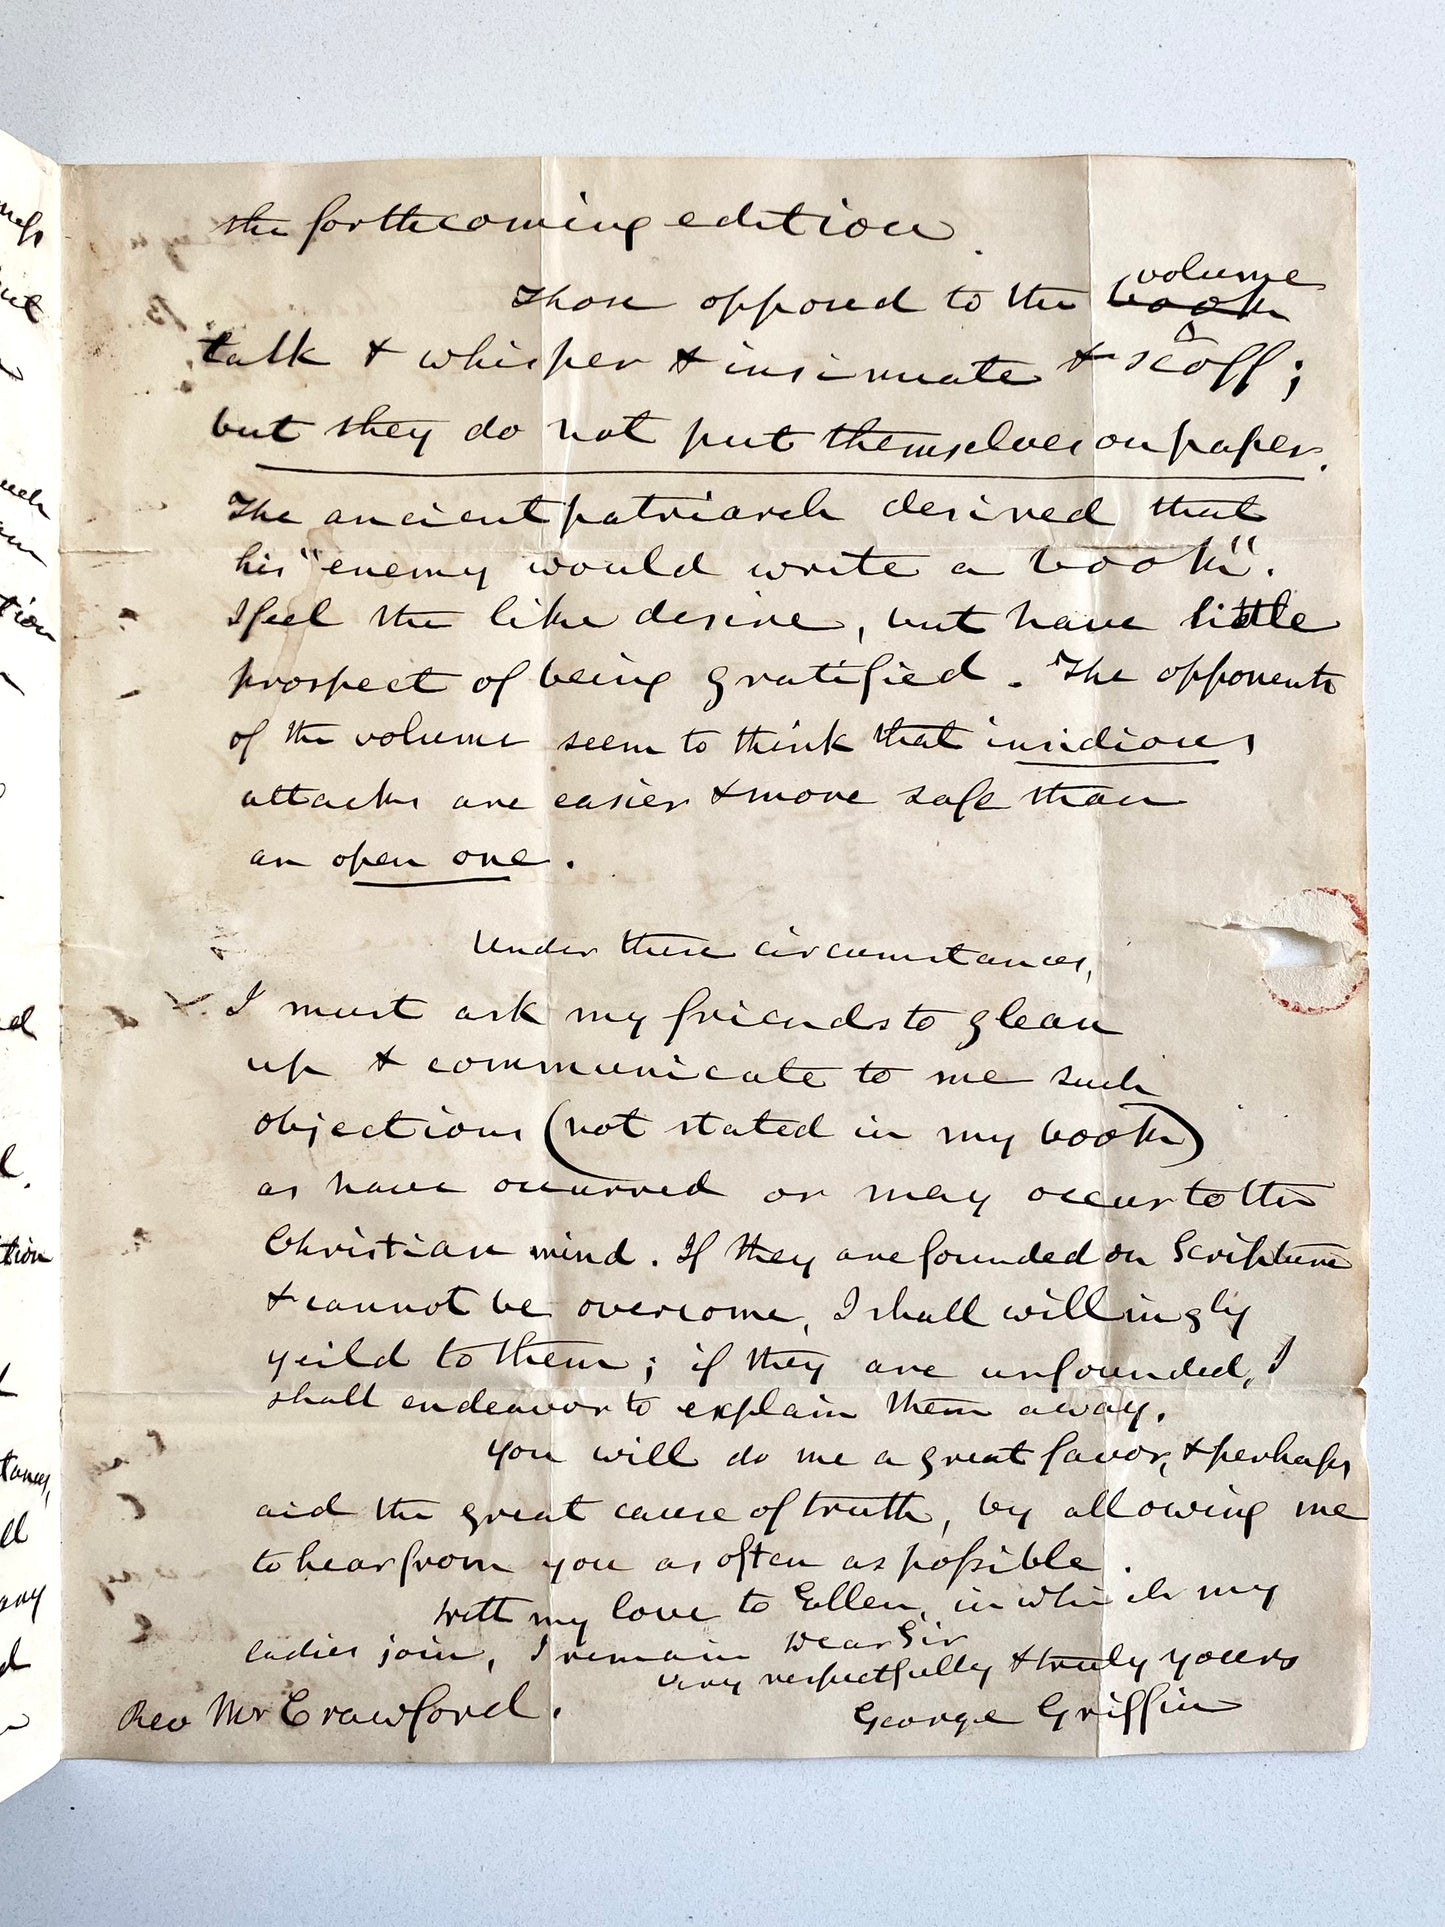 the forthcoming edition.
Those opposed to the book volume
talk & whisper & insinuate & scoff;
but they do not put themselves on paper.
The ancient patriarch desired that
his "enemy would write a book".
I feel the like desire, but have little
prospect of being gratified. The opponents
of the volume seem to think that insidious
attacks are easier & more safe than
an open one.
Under these circumstances,
I must ask my friends to glean
up & communicate to me such
objections (not stated in my book)
as have occurred or may occur to the
Christian mind. If they are founded on Scripture
& cannot be overcome, I shall willingly
yeild to them; if they are unfounded, I
shall endeavor to explain them away.
You will do me a great favor, & perhaps
aid the great cause of truth, by allowing me
to hear from you as often as possible.
With my love to Ellen, in which my
ladies join, I remain Dear Sir
very respectfully & truly yours
Rev Mr Crawford. George Griffin